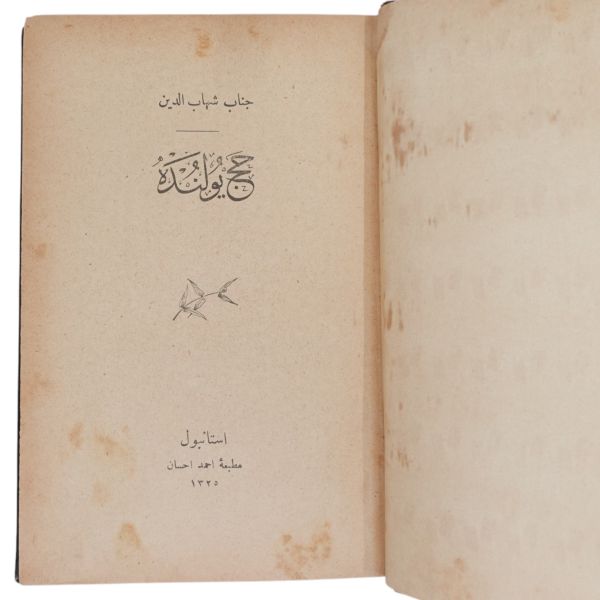 جناب شهاب الدین
حَج يُولنْدَهُ
استانبول
مطبعۀ احمد احسان
١٣٢٥